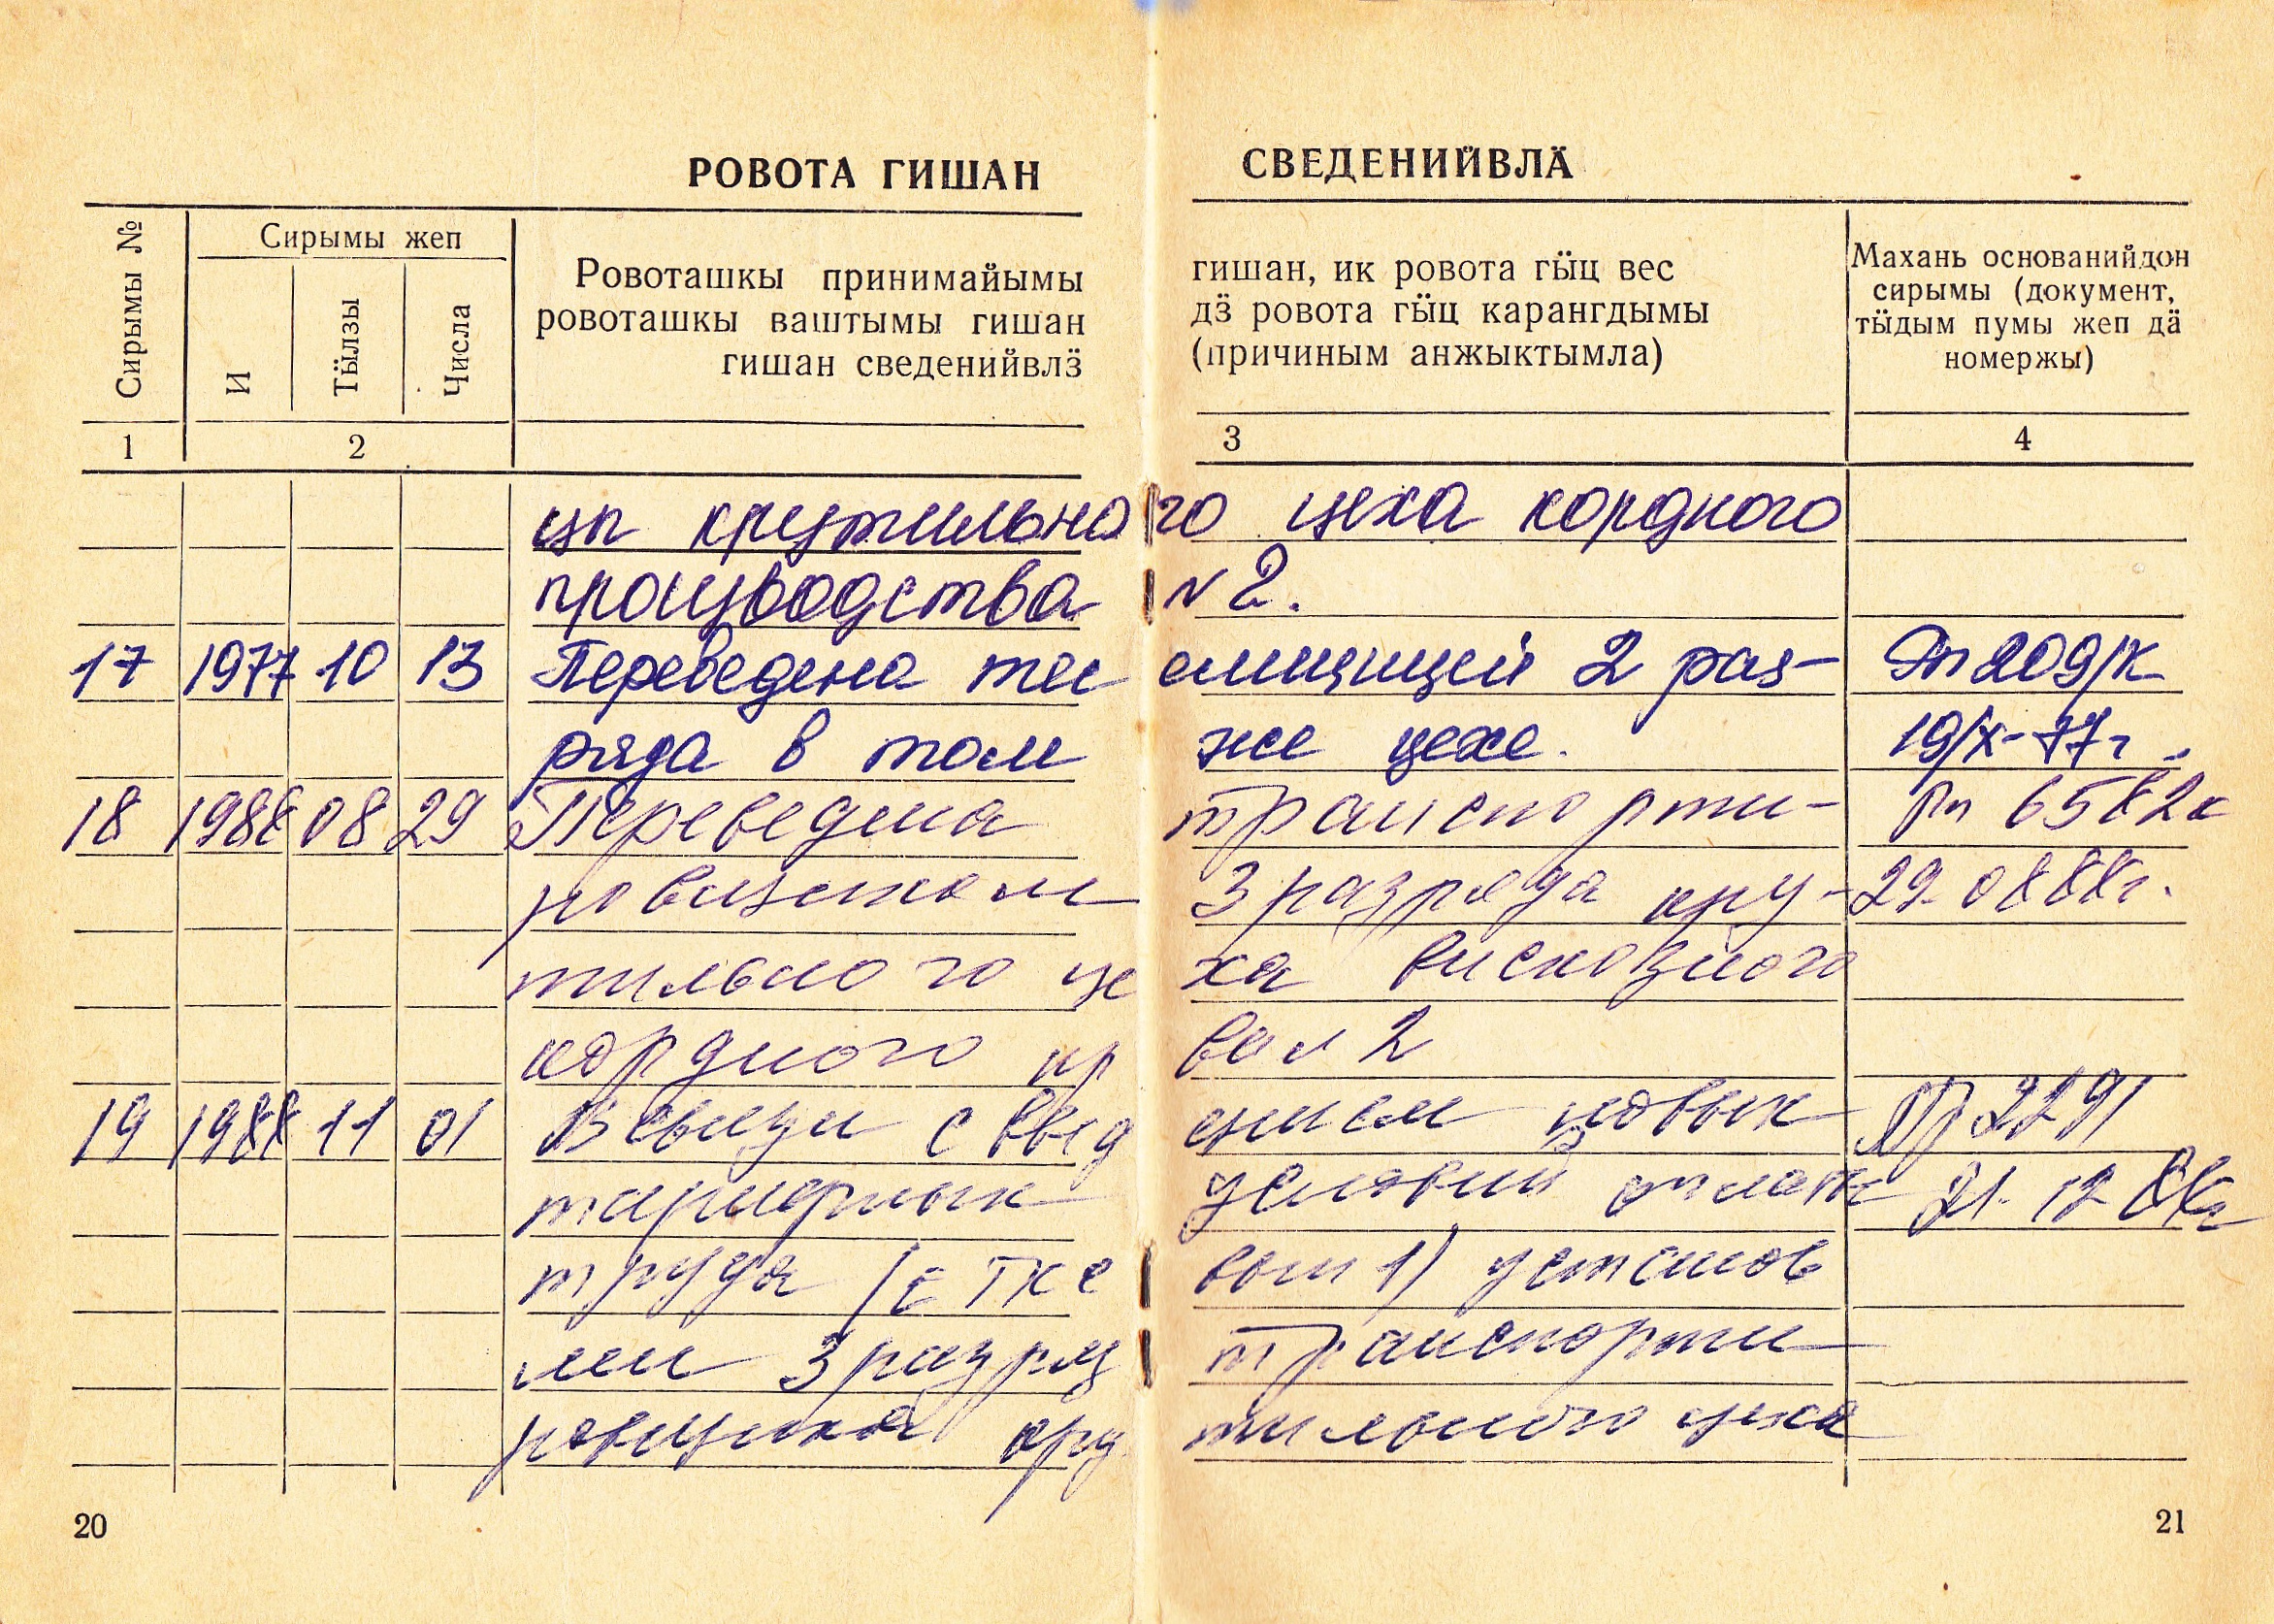 РОВОТА ГИШАН СВЕДЕНИЙВЛӒ
Сирымы №
Сирымы жеп
И
Тӹлзы
Числа
Ровоташкы принимайымы гишан, ик ровота гӹц вес
ровоташкы ваштымы гишан дӟ ровота гӹц карангдымы
гишан сведенийвлӟ (причиным анжыктымла)
Махань основанийдон
сирымы (документ,
тӹдым пумы жеп дӓ
номержы)
1 2 3 4
цы крутильного цеха кордного
производства N 2.
17 1977 10 13 Переведена 2 раз- 209/к
ряда в том же цехе. 19/X-77г.
18 1988 08 29 Переведена транспорти- 6582к
ровщиком 3 разряда кру- 29.08 88г.
тильного цеха вискозного
кордного 2
19 1988 11 01 В связи с введением новых Пр 2291
тарифных условий оплаты 21.12 88г
труда (ЕТКС вып 1) установ
лен 3 разряд транспорти
ровщика крутильного цеха
20 21